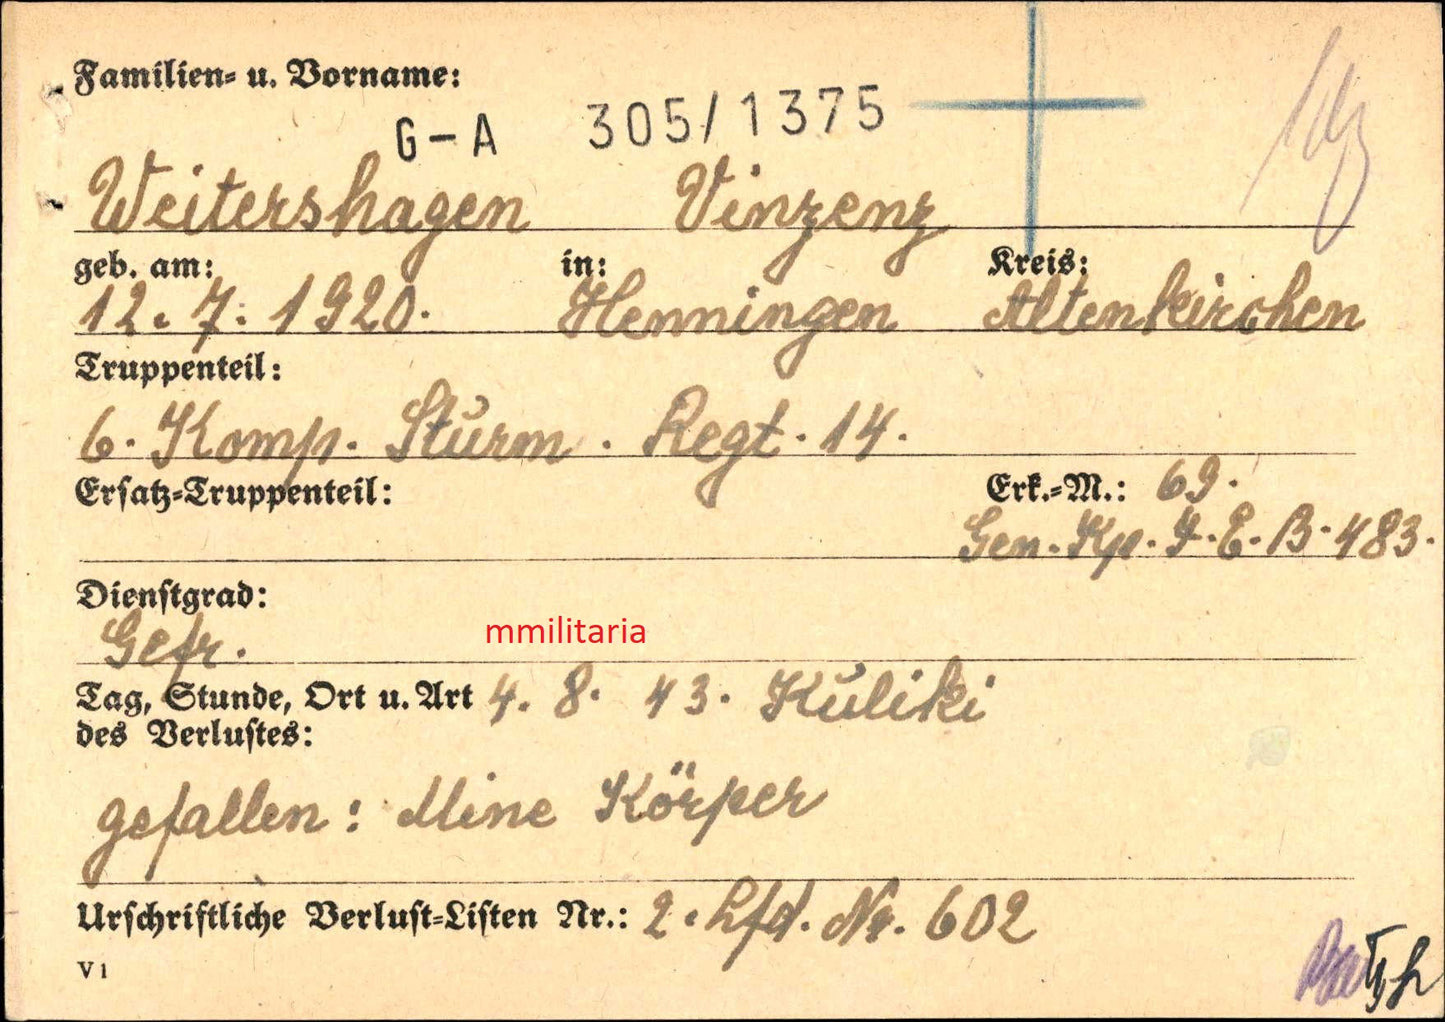 Familien- u. Vorname:
G-A 305/1375
Weitershagen Vinzenz
geb. am: in: Kreis:
12. 7. 1920. Henningen Altenkirchen
Truppenteil:
6. Komp. Sturm. Regt. 14.
Ersatz-Truppenteil: Erk.-M.: 69.
Gen. Kp. I. E. B. 483.
Dienstgrad:
Gefr. mmilitaria
Tag, Stunde, Ort u. Art 4. 8. 43. Kuliki
des Verlustes:
gefallen: Mine Körper
Urschriftliche Verlust-Listen Nr.: 2. Lfd. Nr. 602
V1